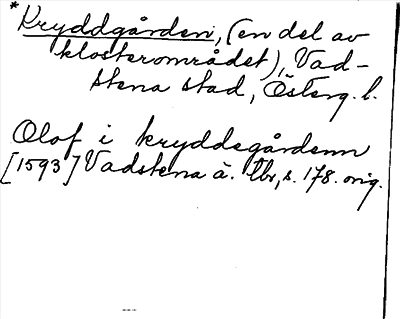 *Kryddgården, (en del av
klosterområdet), Vad-
stena stad, Österg. l.
Olof i kryddegårdenn
[1593] Vadstena ä. tbr, s. 178. orig.